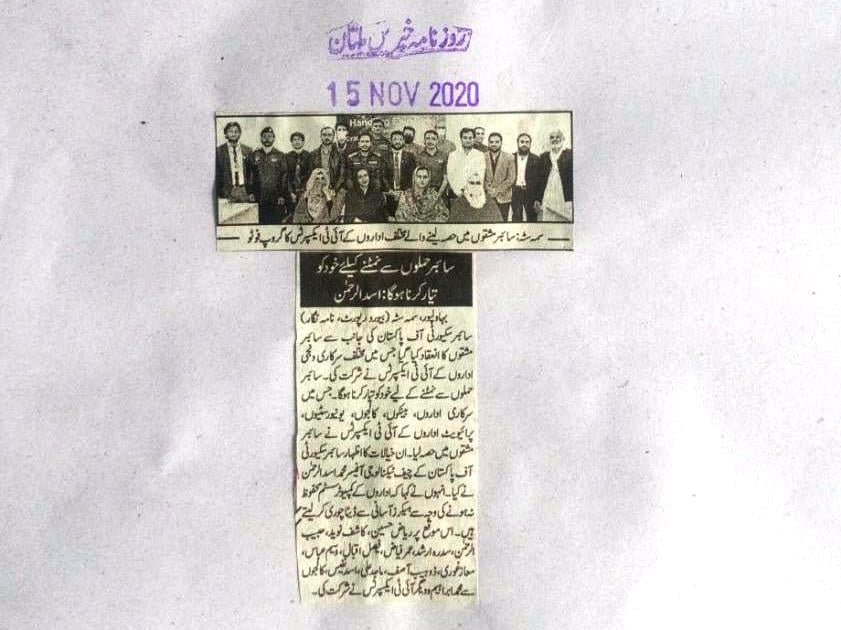 روزنامہ خبریں ملتان
15 NOV 2020
Hand
سمہ سٹہ: سائبر مشقوں میں حصہ لینے والے مختلف اداروں کے آئی ٹی ایکسپرٹس کا گروپ فوٹو
سائبر حملوں سے نمٹنے کیلئے خود کو
تیار کرنا ہوگا: اسد الرحمٰن
بہاولپور، سمہ سٹہ (بیورورپورٹ، نامہ نگار)
سائبر سکیورٹی آف پاکستان کی جانب سے سائبر
مشقوں کا انعقاد کیا گیا جس میں مختلف سرکاری ونجی
اداروں کے آئی ٹی ایکسپرٹس نے شرکت کی۔ سائبر
حملوں سے نمٹنے کے لیے خود کو تیار کرنا ہوگا۔ جس میں
سرکاری اداروں، بینکوں، کالجوں، یونیورسٹیوں،
پرائیویٹ اداروں کے آئی ٹی ایکسپرٹس نے سائبر
مشقوں میں حصہ لیا۔ ان خیالات کا اظہار سائبر سکیورٹی
آف پاکستان کے چیف ٹیکنالوجی آفیسر محمد اسد الرحمٰن
نے کیا۔ انہوں نے کہا کہ اداروں کے کمپیوٹر سسٹم محفوظ
نہ ہونے کی وجہ سے ہیکرز آسانی سے ڈیٹا چوری کر لیتے
ہیں۔ اس موقع پر ریاض حسین، کاشف نوید، حبیب
الرحمٰن، سدرہ ارشد، عمر فیاض، فیصل اقبال، وسیم عباس،
معاذ غوری، ذوہیب آصف، ماجد علی، اسد نفیس، کالجوں
سے محمد ابراہیم ودیگر آئی ٹی ایکسپرٹس نے شرکت کی۔